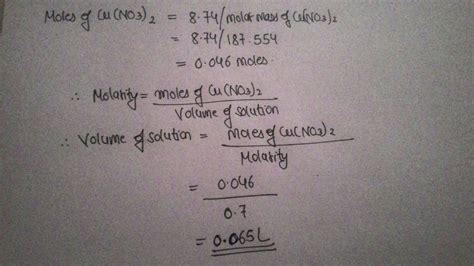 Moles of Cu(NO3)2 = 8.74/molar mass of Cu(NO3)2
= 8.74/187.554
= 0.046 moles.
∴ Molarity = moles of Cu(NO3)2
Volume of solution
∴ Volume of solution = moles of Cu(NO3)2
Molarity
= 0.046
0.7
= 0.065L